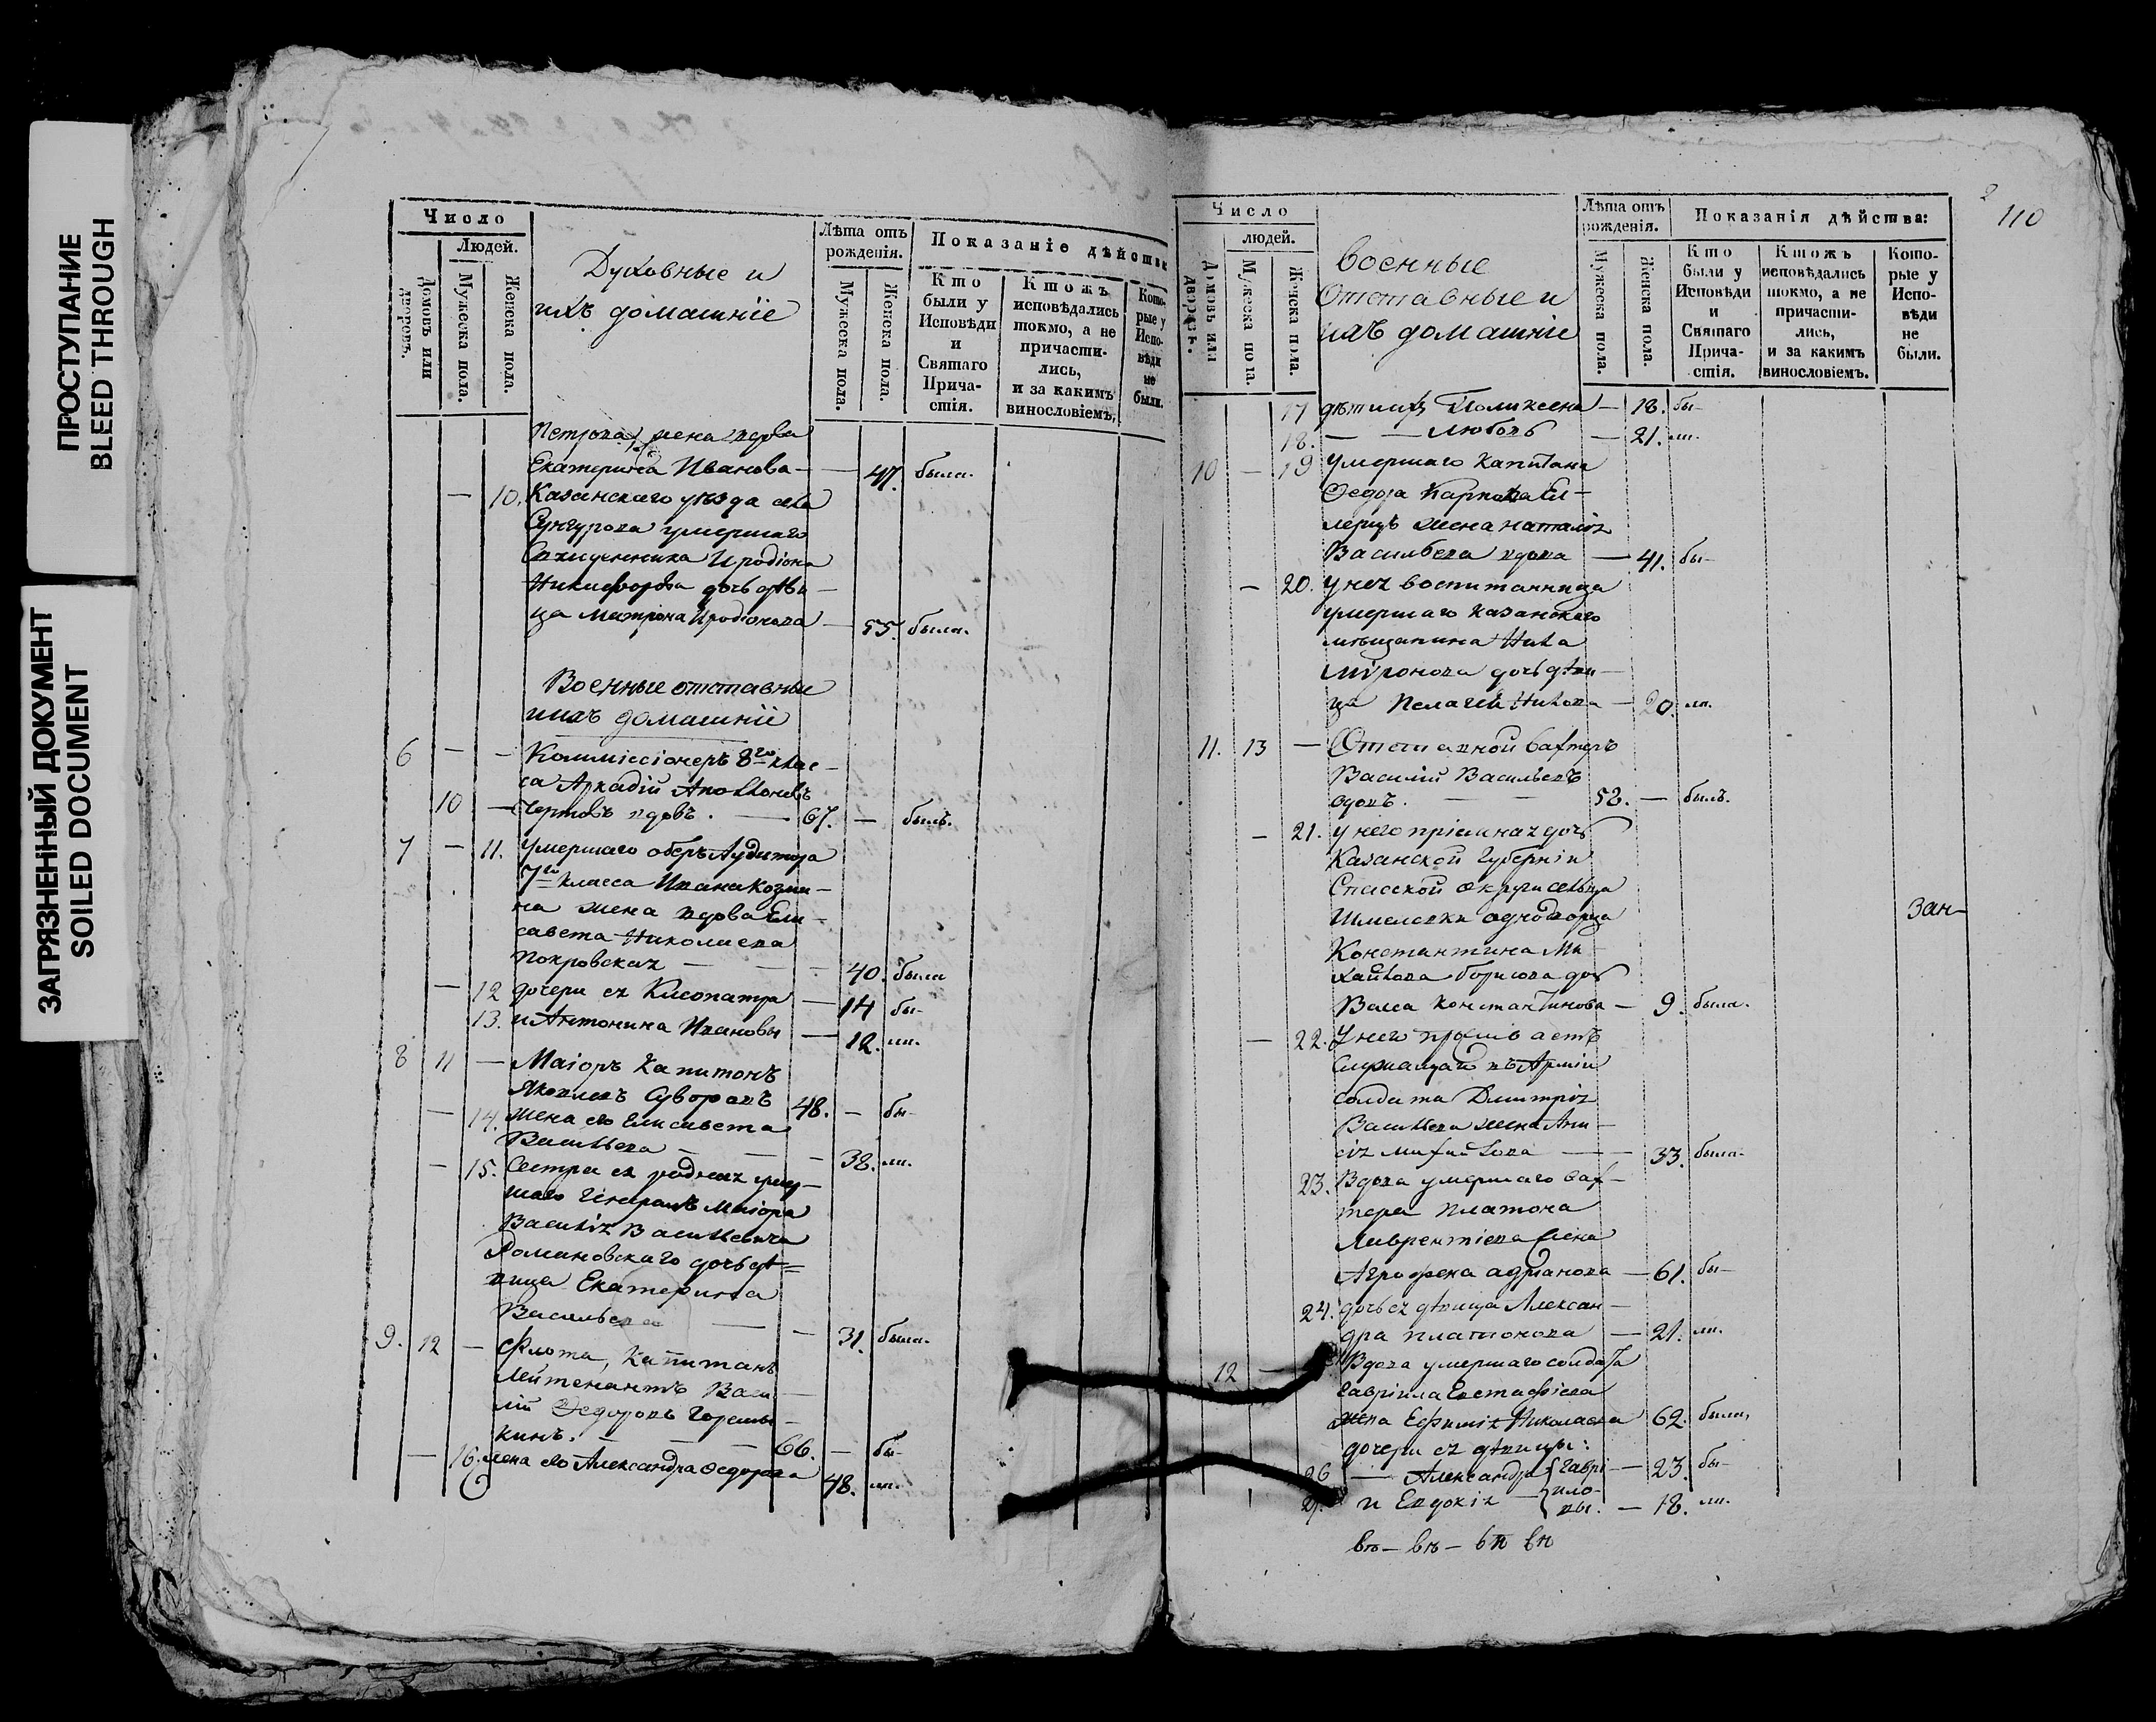 ПРОСТУПАНИЕ
BLEED THROUGH
ЗАГРЯЗНЕННЫЙ ДОКУМЕНТ
SOILED DOCUMENT
Число
Людей.
Домовъ или дворовъ.
Мужеска пола.
Женска пола.
Духовные и
ихъ домашніе
Лѣта отъ рожденія.
Мужеска пола.
Женска пола.
Показаніе дѣйства
Кто были у Исповѣди и Святаго Прича- стія.
Ктожъ исповѣдались токмо, а не причасти- лись, и за какимъ винословіемъ.
Кото- рые у Испо- вѣди не были.
Петрова жена вдова
Екатерина Иванова — 47. была.
— 10. Казанскаго уѣзда села
Сунгурова умершаго
Священника Иродіона
Никифорова дочь дѣви-
ца Матрона Иродіонова — 55. была.
Военные отставные
ихъ домашніе
6 — — Коммиссіонеръ 8го клас-
са Аркадій Аполлоновъ
10 — Чертовъ вдовъ. — 67. — былъ.
7 — 11. Умершаго оберъ Аудитора
7го класса Ивана Козми-
на жена вдова Ели-
савета Николаева
Покровская — 40. была
— 12 дочери ея Клеопатра — 14 бы-
13. и Антонина Ивановы — 12. ли.
8 11 — Маіоръ Капитонъ
Яковлевъ Суворовъ 48. — бы-
— 14. жена его Елисавета
Васильева — — 38. ли.
— 15. Сестра ея родная умер-
шаго Генералъ Маіора
Василія Васильевича
Романовскаго дочь дѣ=
вица Екатерина
Васильева — — 31. была.
9. 12 — Флота, Капитанъ
Лейтенантъ Васи-
лій Федоровъ Горемы-
кинъ. — — 66. — бы-
— 16. жена его Александра Федорова 48. ли.
2
110
Число
людей.
Домовъ или дворовъ.
Мужеска пола.
Женска пола.
Военные
Отставные и
ихъ домашніе
Лѣта отъ рожденія.
Мужеска пола.
Женска пола.
Показанія дѣйства:
Кто были у Исповѣди и Святаго Прича- стія.
Ктожъ исповѣдались токмо, а не причасти- лись, и за какимъ винословіемъ.
Кото- рые у Испо- вѣди не были.
17 дѣти ихъ Поликсена — 18. бы-
18. — — Любовь — 21. ли.
10 — 19 Умершаго Капитана
Федора Карпова
жена Наталія
Васильева вдова — 41. бы-
— 20. У нея воспитанница
умершаго Казанскаго
мѣщанина Нила
Мѵронова дочь дѣви-
ца Пелагея Нилова — 20. ли.
11. 13 — Отставной вахтеръ
Василій Васильевъ
вдовъ. — — 52. — былъ.
— 21. у него пріемная дочь
Казанской Губерніи
Спасской округи сельца
Шмелевки однодворца
Константина Ми-
хайлова Борисова дочь
Васса Константинова — 9. была.
— 22. У него проживаетъ
служащаго въ Арміи
солдата Дмитрія
Васильева жена Ани-
сія Михайлова — — 33. была.
23. Вдова умершаго вах-
тера Платона
Лаврентіева жена
Агрофена Адріанова — 61. бы-
24. дочь ея дѣвица Алексан-
дра Платонова — 21. ли.
12 — Вдова умершаго солдата
Гавріила Евстафіева
жена Ефимія Николаева 62. была,
дочери ея дѣвицы:
26 — Александра Гаври- — 23. бы-
27. и Евдокія — ило- вы. — 18. ли.